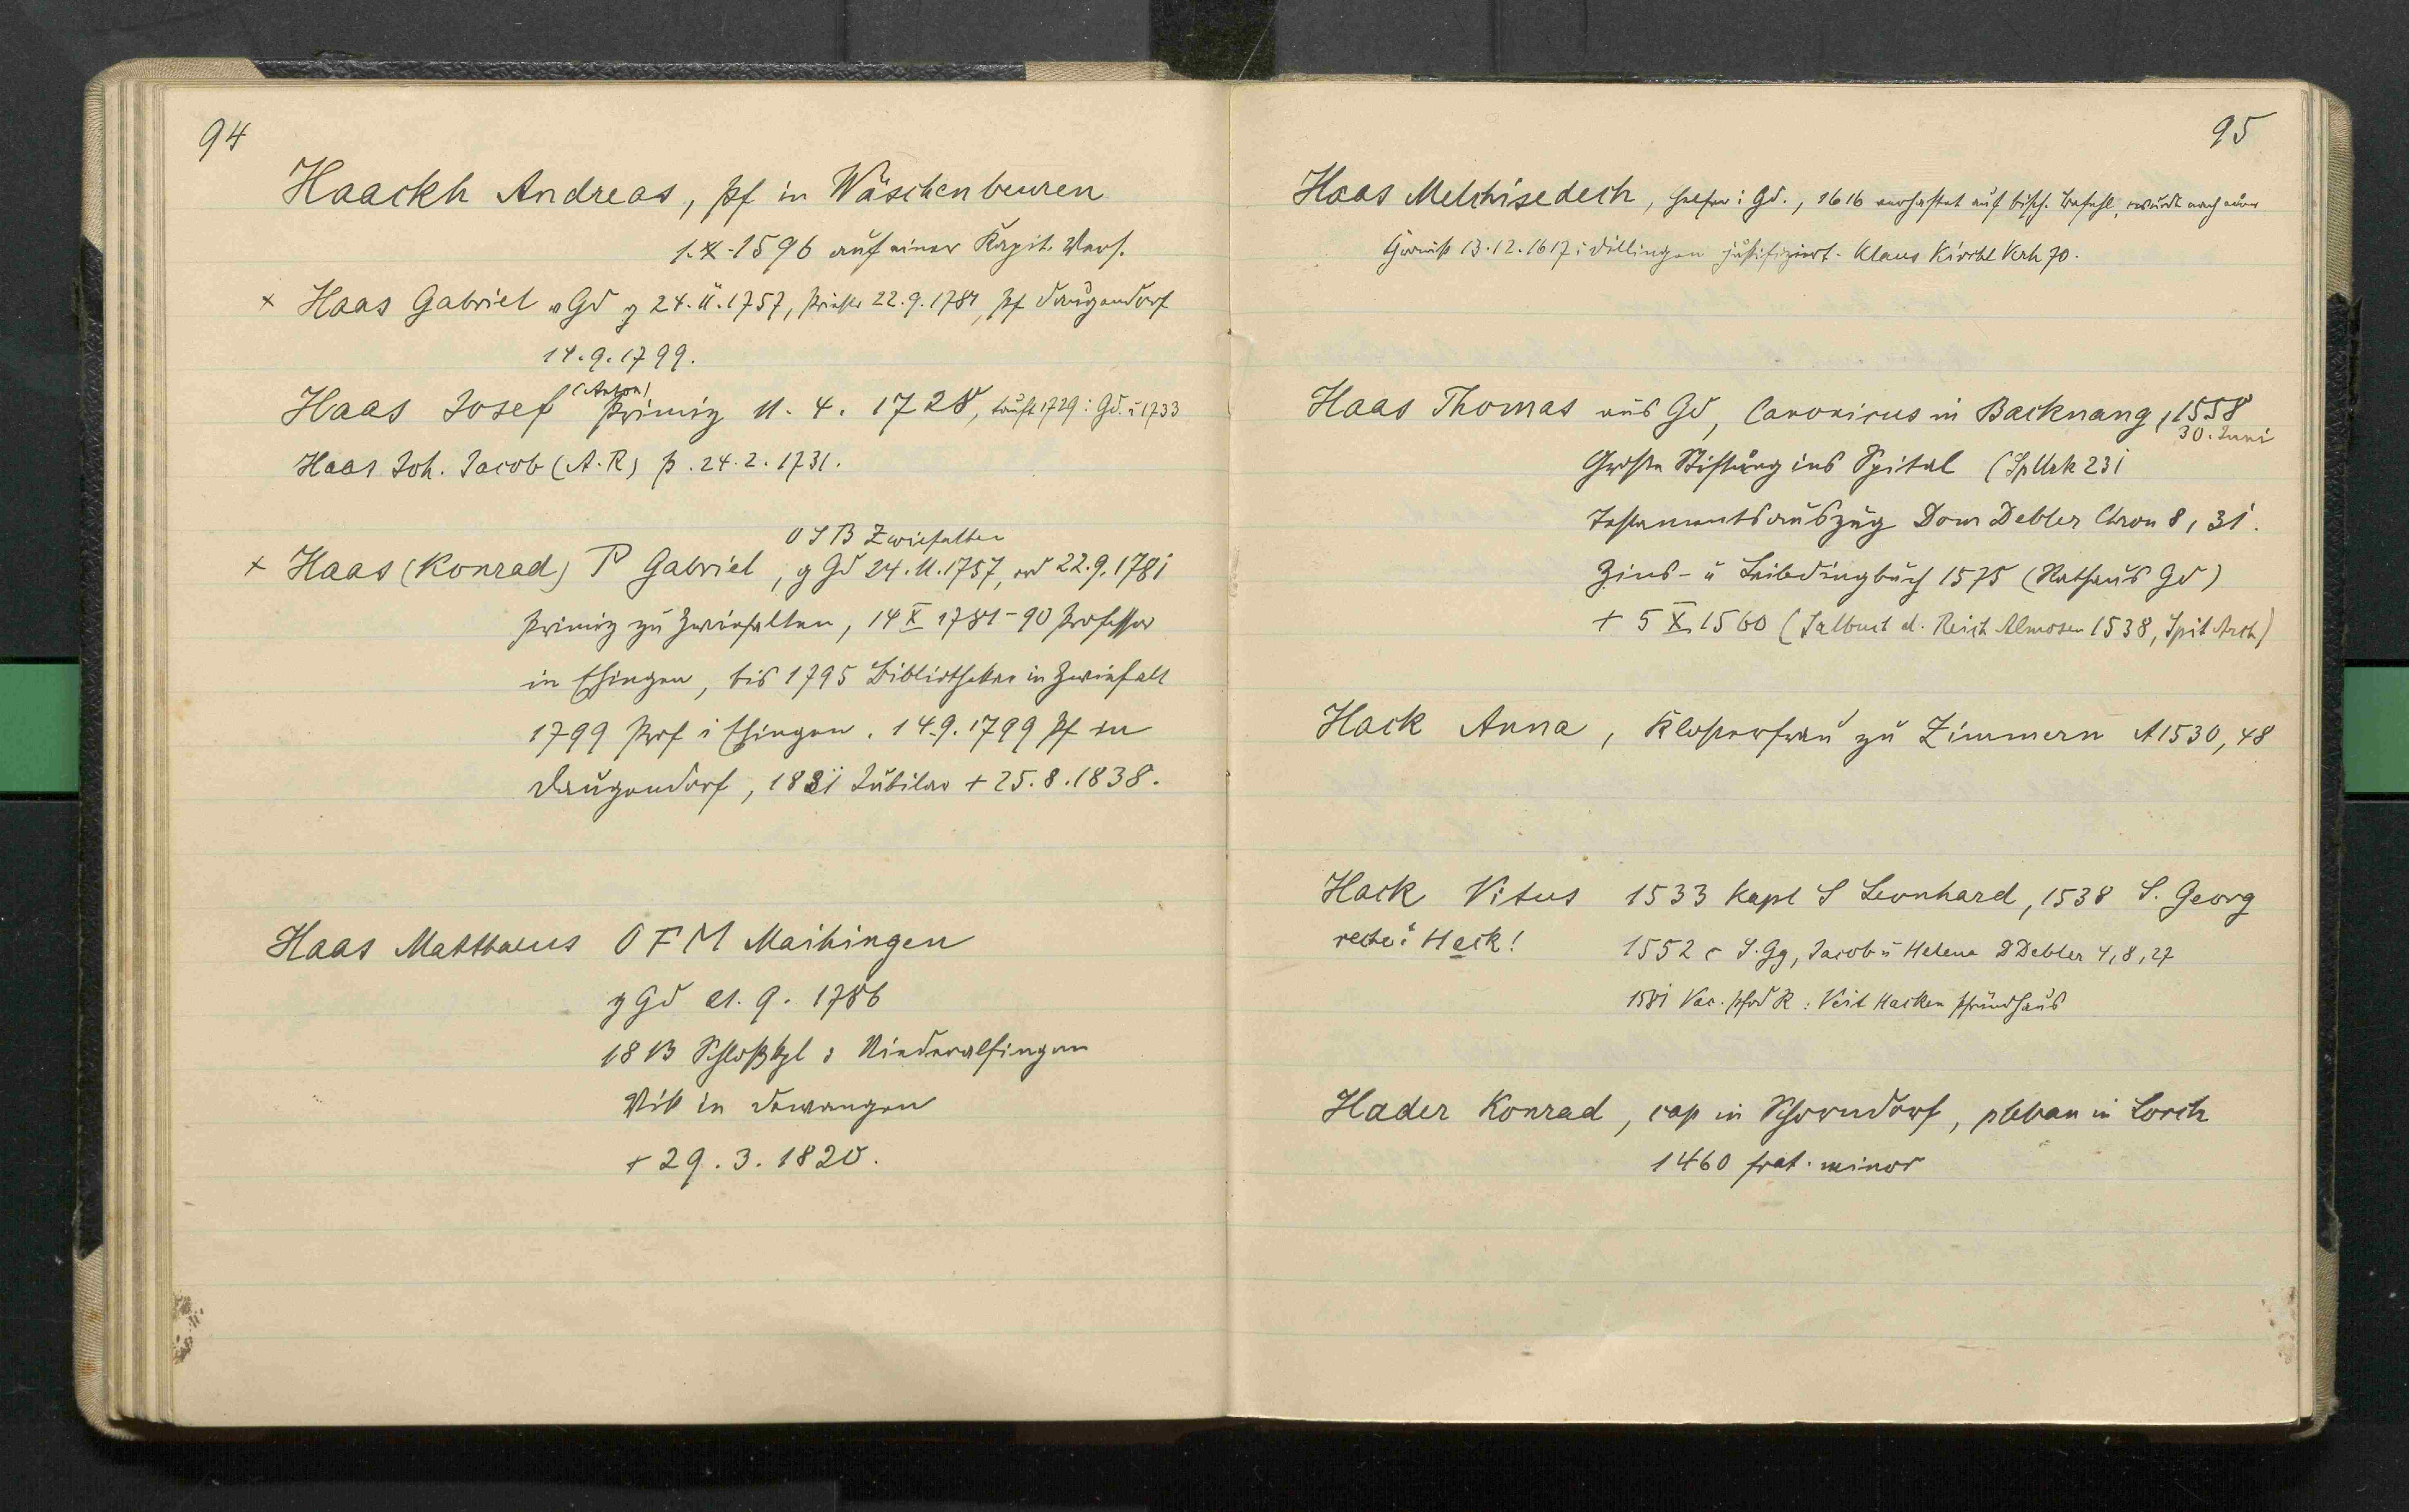 94
Haackh Andreas, Pf in Wäschenbeuren
1.X.1596 auf einer Kapit. Vers.
x Haas Gabriel v Gd g 24.11.1757, Priester 22.9.1781, Pf Daugendorf
14.9.1799.
(Anton)
Haas Josef Primiz 11.4.1728, tauft 1729 i Gd. u 1733
Haas Joh. Jacob (A.R) p. 24.2.1731.
OSB Zwiefalten
x Haas (Konrad) P Gabriel, g Gd 24.11.1757, ord 22.9.1781
Primiz zu Zwiefalten, 14 X 1781-90 Professor
in Ehingen, bis 1795 Bibliothekar in Zwiefalt
1799 Prof i Ehingen. 14.9.1799 Pf in
Daugendorf, 1831 Jubilar + 25.8.1838.
Haas Matthaeus OFM Maihingen
g Gd 21.9.1786
1813 Schloßkpl i Niederalfingen
Vik in Dewangen
+ 29.3.1820.
95
Haas Melchisedech, Helfer i Gd., 1616 verhaftet auf bisch. Befehl, wurde nach
13.12.1617 i Dillingen justifiziert. Klaus Kirchl Verh 70.
Haas Thomas aus Gd, Canonicus in Backnang, 1558
30. Juni
Große Stiftung ins Spital (Sp Urk 231
Testamentsauszug Dom Debler Chron 8, 31.
Zins- u Leibdingbuch 1575 (Rathaus Gd)
+ 5 X 1560 (Salbuch d. Reich Almosen 1538, Spit Arch)
Hack Anna, Klosterfrau zu Zimmern A1530, 48
Hack Vitus 1533 Kapl S Leonhard, 1538 S. Georg
recte: Hack! 1552 c S. Gg, Jacob u Helena D Debler 4, 8, 27
1581 Vac. Pfrd R: Veit Hacken Pfründhaus
Hader Konrad, cap in Schorndorf, pleban in Lorch
1460 frat. minor